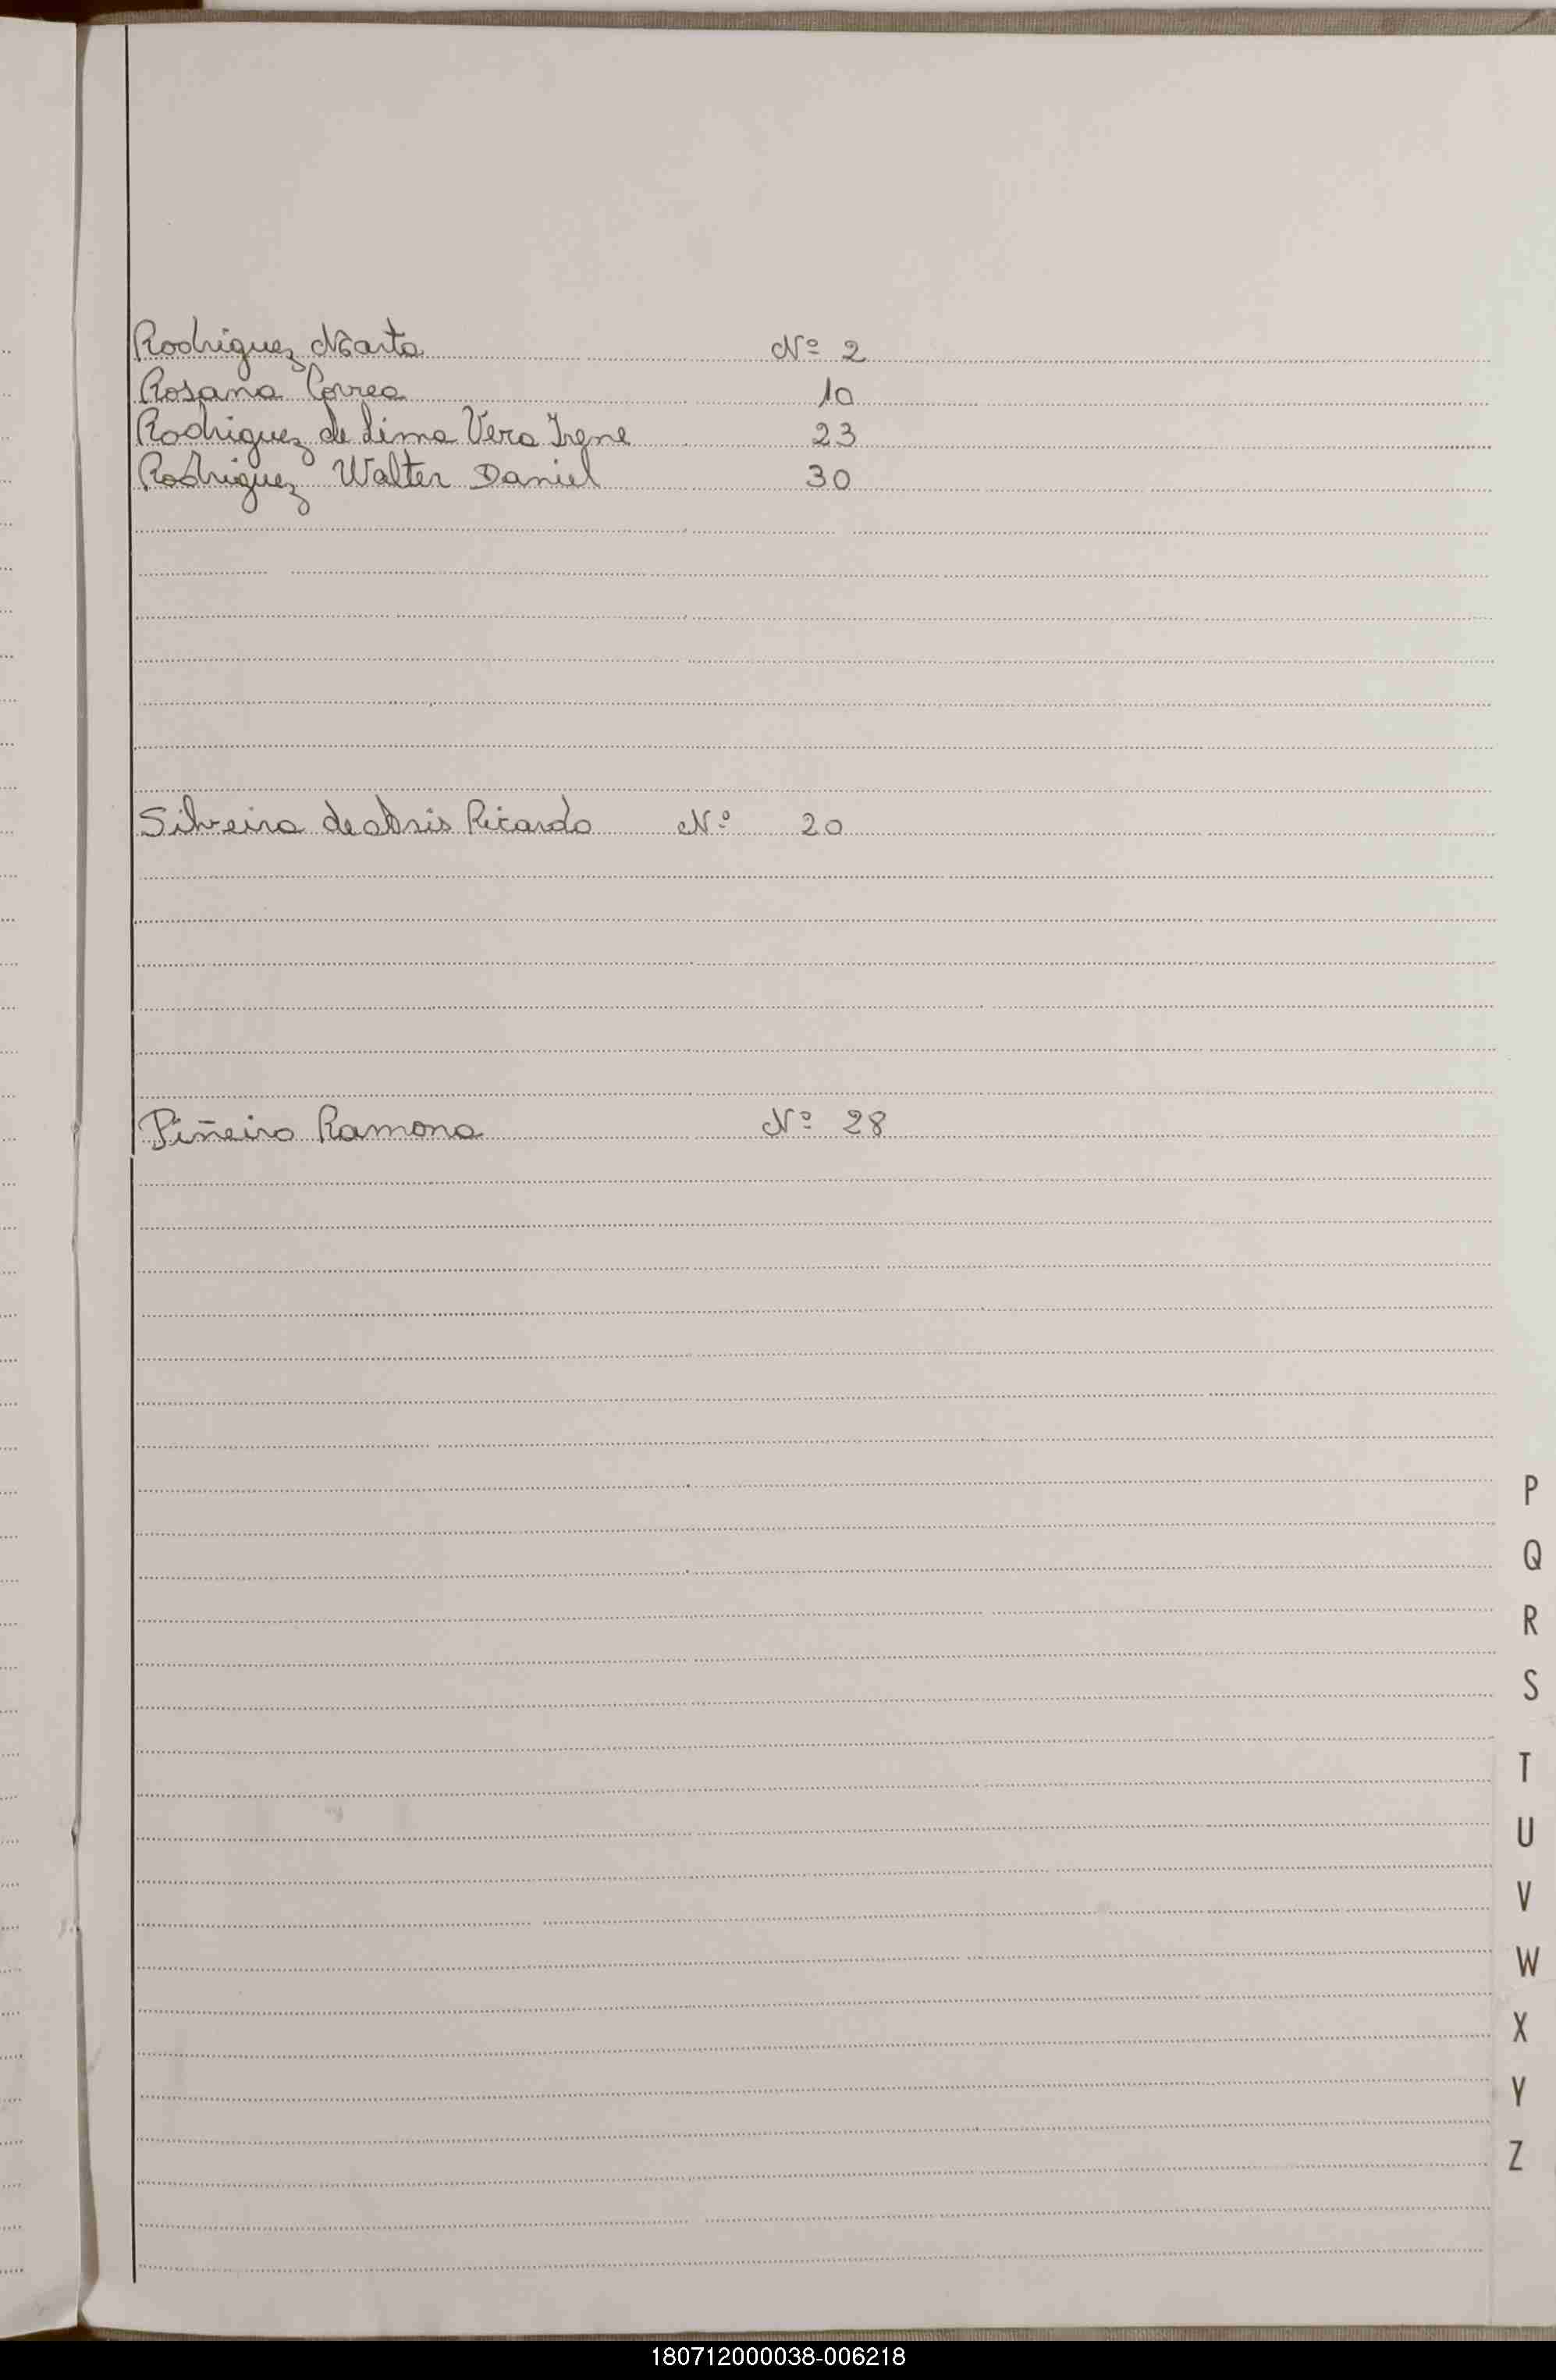 Rodriguez Marta Nº 2
Rosana Correa 10
Rodriguez de Lima Vera Irene 23
Rodriguez Walter Daniel 30
Silveira de Ricardo Nº 20
Piñeiro Ramona Nº 28
P
Q
R
S
T
U
V
W
X
Y
Z
180712000038-006218